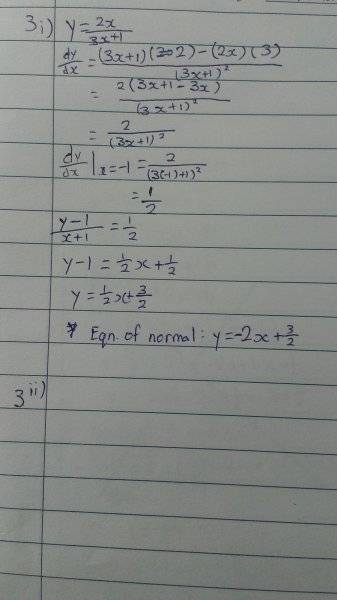 3i) y = 2x/3x+1
dy/dx = (3x+1)(2) - (2x)(3)/(3x+1)²
= 2(3x+1-3x)/(3x+1)²
= 2/(3x+1)²
dy/dx|x=-1 = 2/(3(-1)+1)²
= 1/2
y-1/x+1 = 1/2
y-1 = 1/2x + 1/2
y = 1/2x + 3/2
Eqn. of normal: y = -2x + 3/2
3ii)